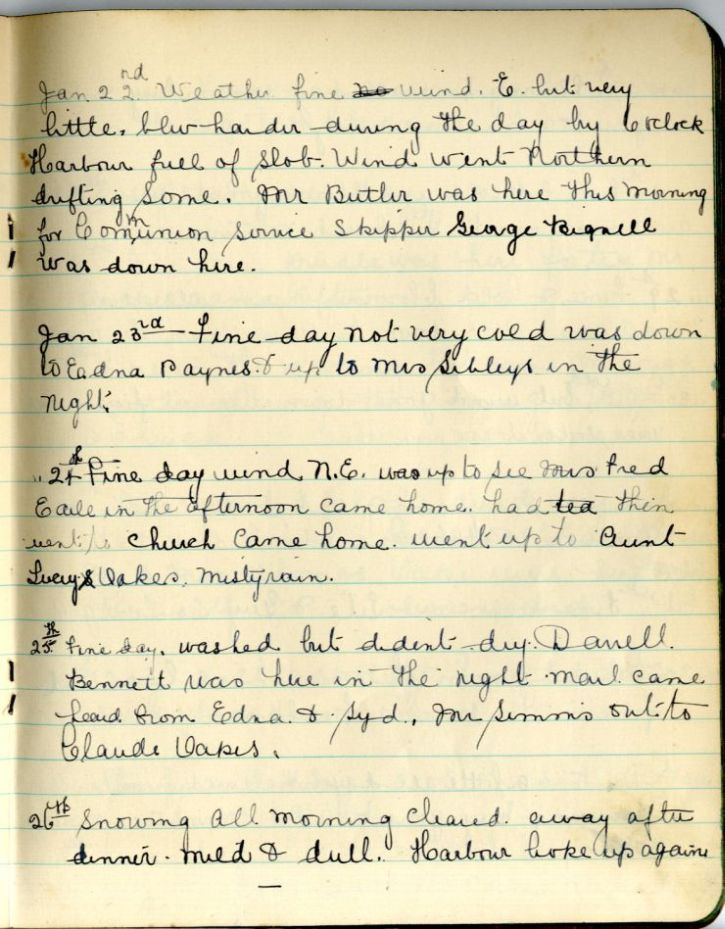 Jan 22nd Weather fine no wind. E. but very
little, blew harder during the day by 6 oclock
Harbour fuel of slob. Wind went Northern
drifting some. Mr Butler was here this morning
for Communion service Skipper George Bignell
was down here.
Jan 23rd Fine day not very cold was down
to Eadna Paynes. & up to Mrs Sibleys in the
night.
" 24 Fine day wind N.E. was up to see Mrs Fred
Earle in the afternoon came home. had tea then
went to church came home. went up to Aunt
Lucy Oakes, misty rain.
25th Fine day, washed but dident dry. Darrell
Bennett was here in the night mail came
heard from Edna. & Syd., Mr Simms out to
Claude Oakes.
26th Snowing all morning cleared away after
dinner. mild & dull. Harbour broke up again